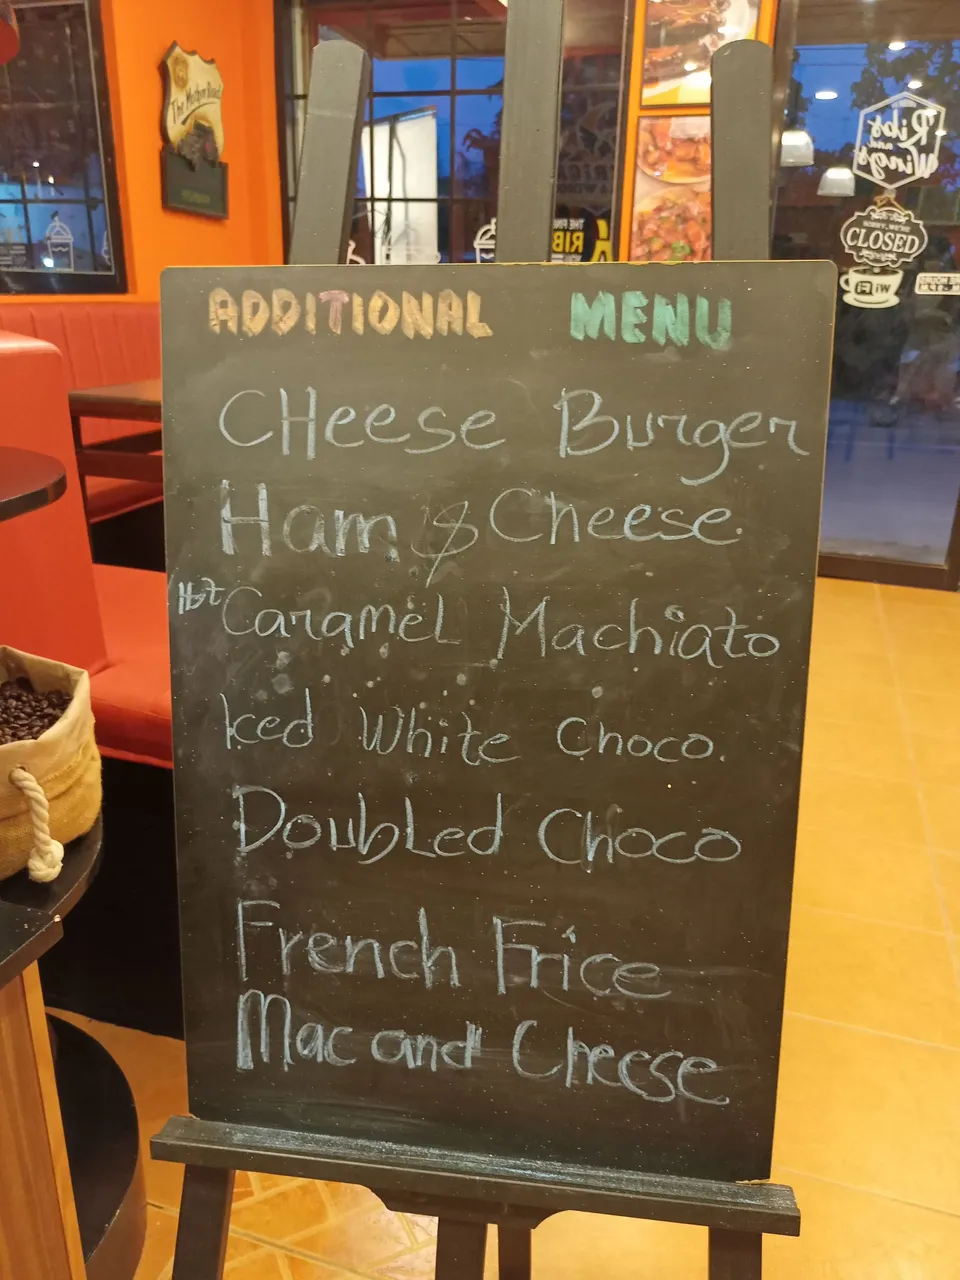 The Mother Road
Ribs
and
Wings
THE FIN
RIB
SORRY, WE'RE
CLOSED
WiFi
ADDITIONAL MENU
CHeese Burger
Ham & Cheese
Hot Caramel Machiato
Iced White Choco.
Doubled Choco
French Frice
Mac and Cheese